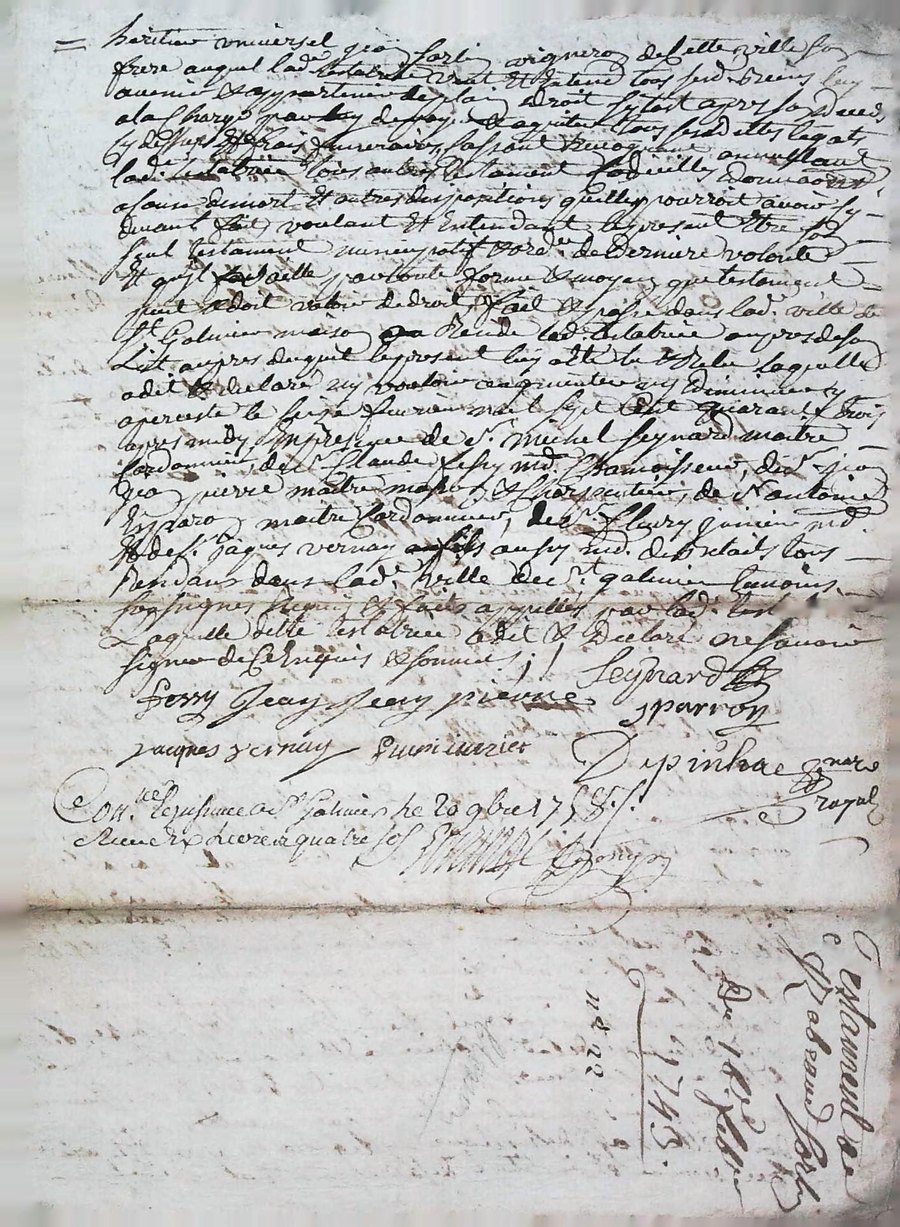 heritier universel jean forlin vigneron de cette ville son
frere auquel lad.e testatrice veut et entend tous sesd. biens luy
avenir et appartenir de plain droit sytost apres son deceds
a la charge par luy de payer et aquiter tous ses dettes legat
cy dessus et frais funeraires, cassant revoquant annullant
lad. testatrice tous autres testament codicilles donnaons
a cause de mort et autres dispositions quelle pourroit avoir cy
devant fait, voulant et entendant le present être son
seul testament nuncupatif et ord.e de derniere volonté
et quil vaille par toute forme et moyen que testament
peut et doit valoir de droit, fait et passé dans lad. ville de
St Galmier maison ou reside lad. testatrice aupres de son
lit aupres duquel le present luy a été lu et relu laquelle
a dit et declaré ny vouloir augmenter ny diminuer y
a persisté le seize fevrier mil sept cent quarante trois
apres midy en presence de Sr. michel seynard maitre
cordonnier, de Sr. Claude ferry md. chamoisseur, de Sr. jean
jean pierre maitre masson et charpentier, de Sr antoine
esparron maitre cordonnier, de Sr. fleury junien md
et de Sr. jaques vernay aussy md. de details tous
residans dans lad. ville de St galmier temoins
soussignes requis et faits appelles par lad. test.
laquelle ditte testatrice a dit et declaré ne savoir
signer de ce enquis et sommés
Seynard
ferry Jean Jean pierre
sparron
Jacques vernay
Depinhac nore
royal
Con.lle le jusime a St Galmier le 20 9bre 1758
Recu livre quatre sols
Testament de
Mabeaud forlin
Du 16e febvrier
1743.
n° 22